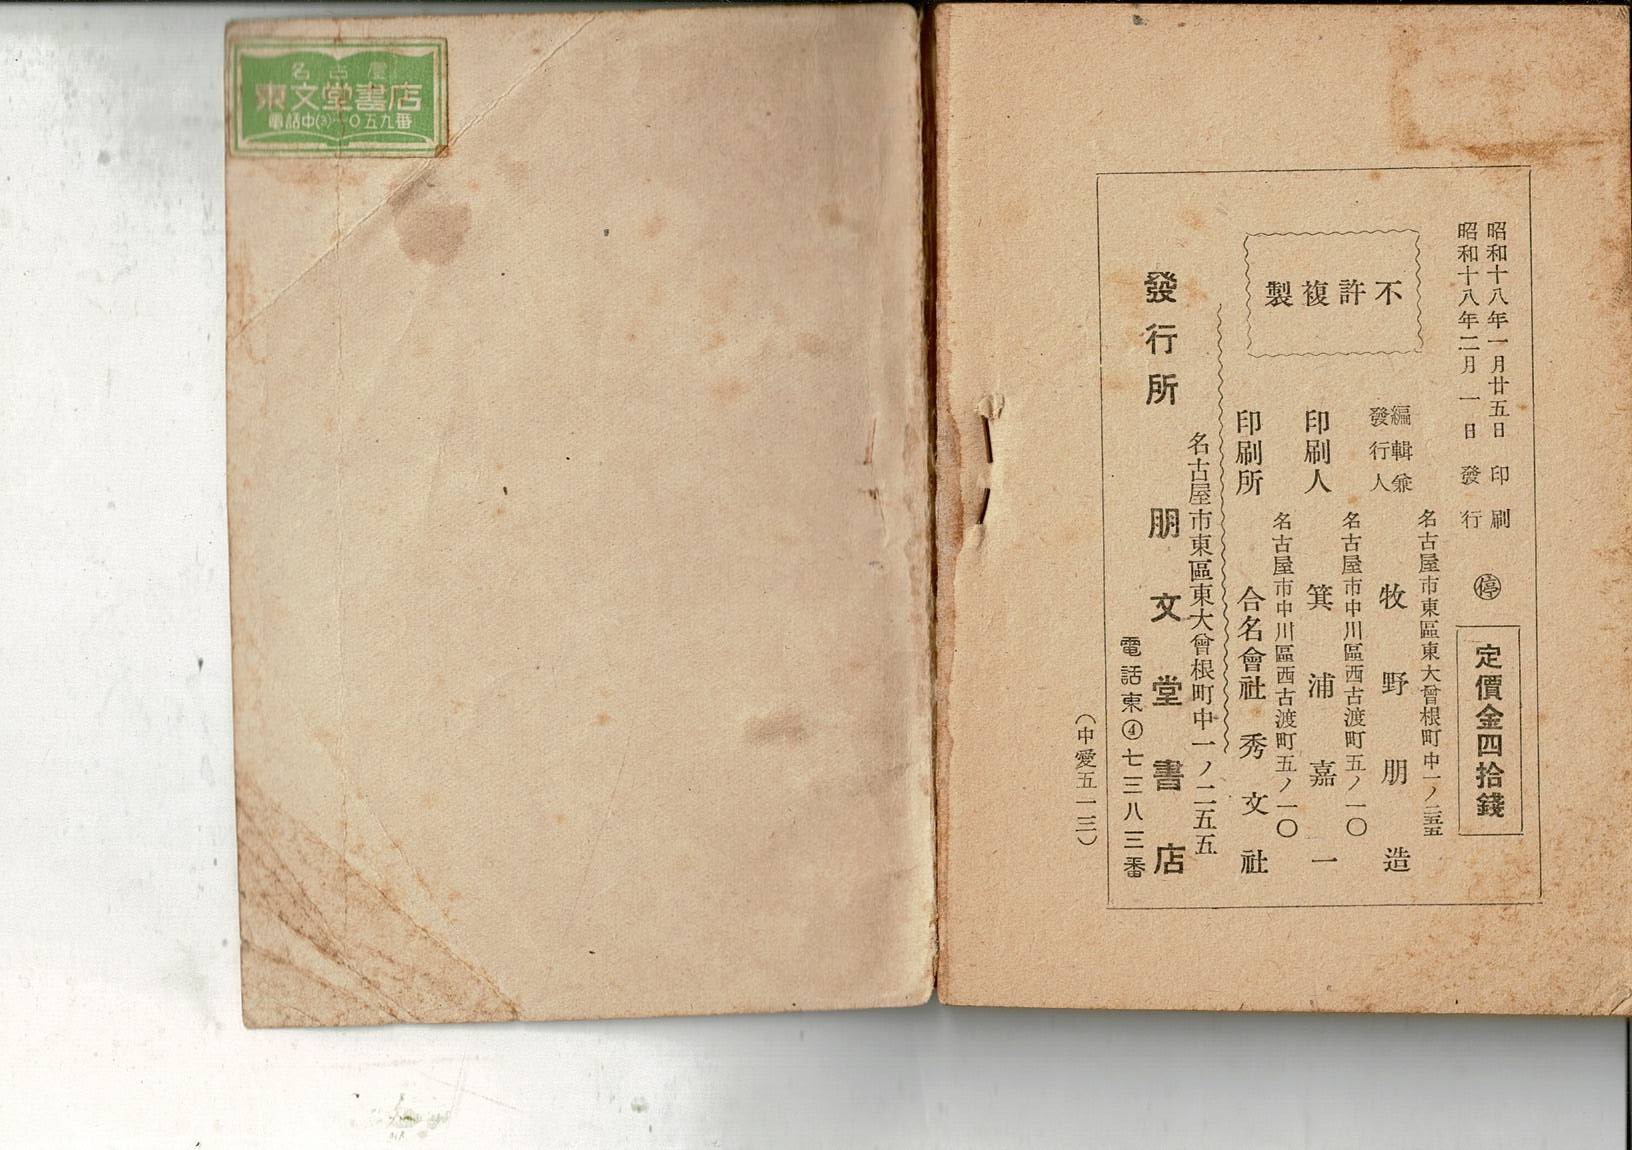 昭和十八年一月廿五日印刷
昭和十八年二月一日發行
㊡定價金四拾錢
不許複製
名古屋市東區東大曾根町中一ノ二五五
編輯兼
發行人
牧野朋造
名古屋市中川區西古渡町五ノ一〇
印刷人 箕浦嘉一
名古屋市中川區西古渡町五ノ一〇
印刷所 合名會社 秀文社
名古屋市東區東大曾根町中一ノ二五五
發行所 朋文堂書店
電話東④七三八三番
(中愛五一三)
名古屋
東文堂書店
電話中(3)一〇五九番